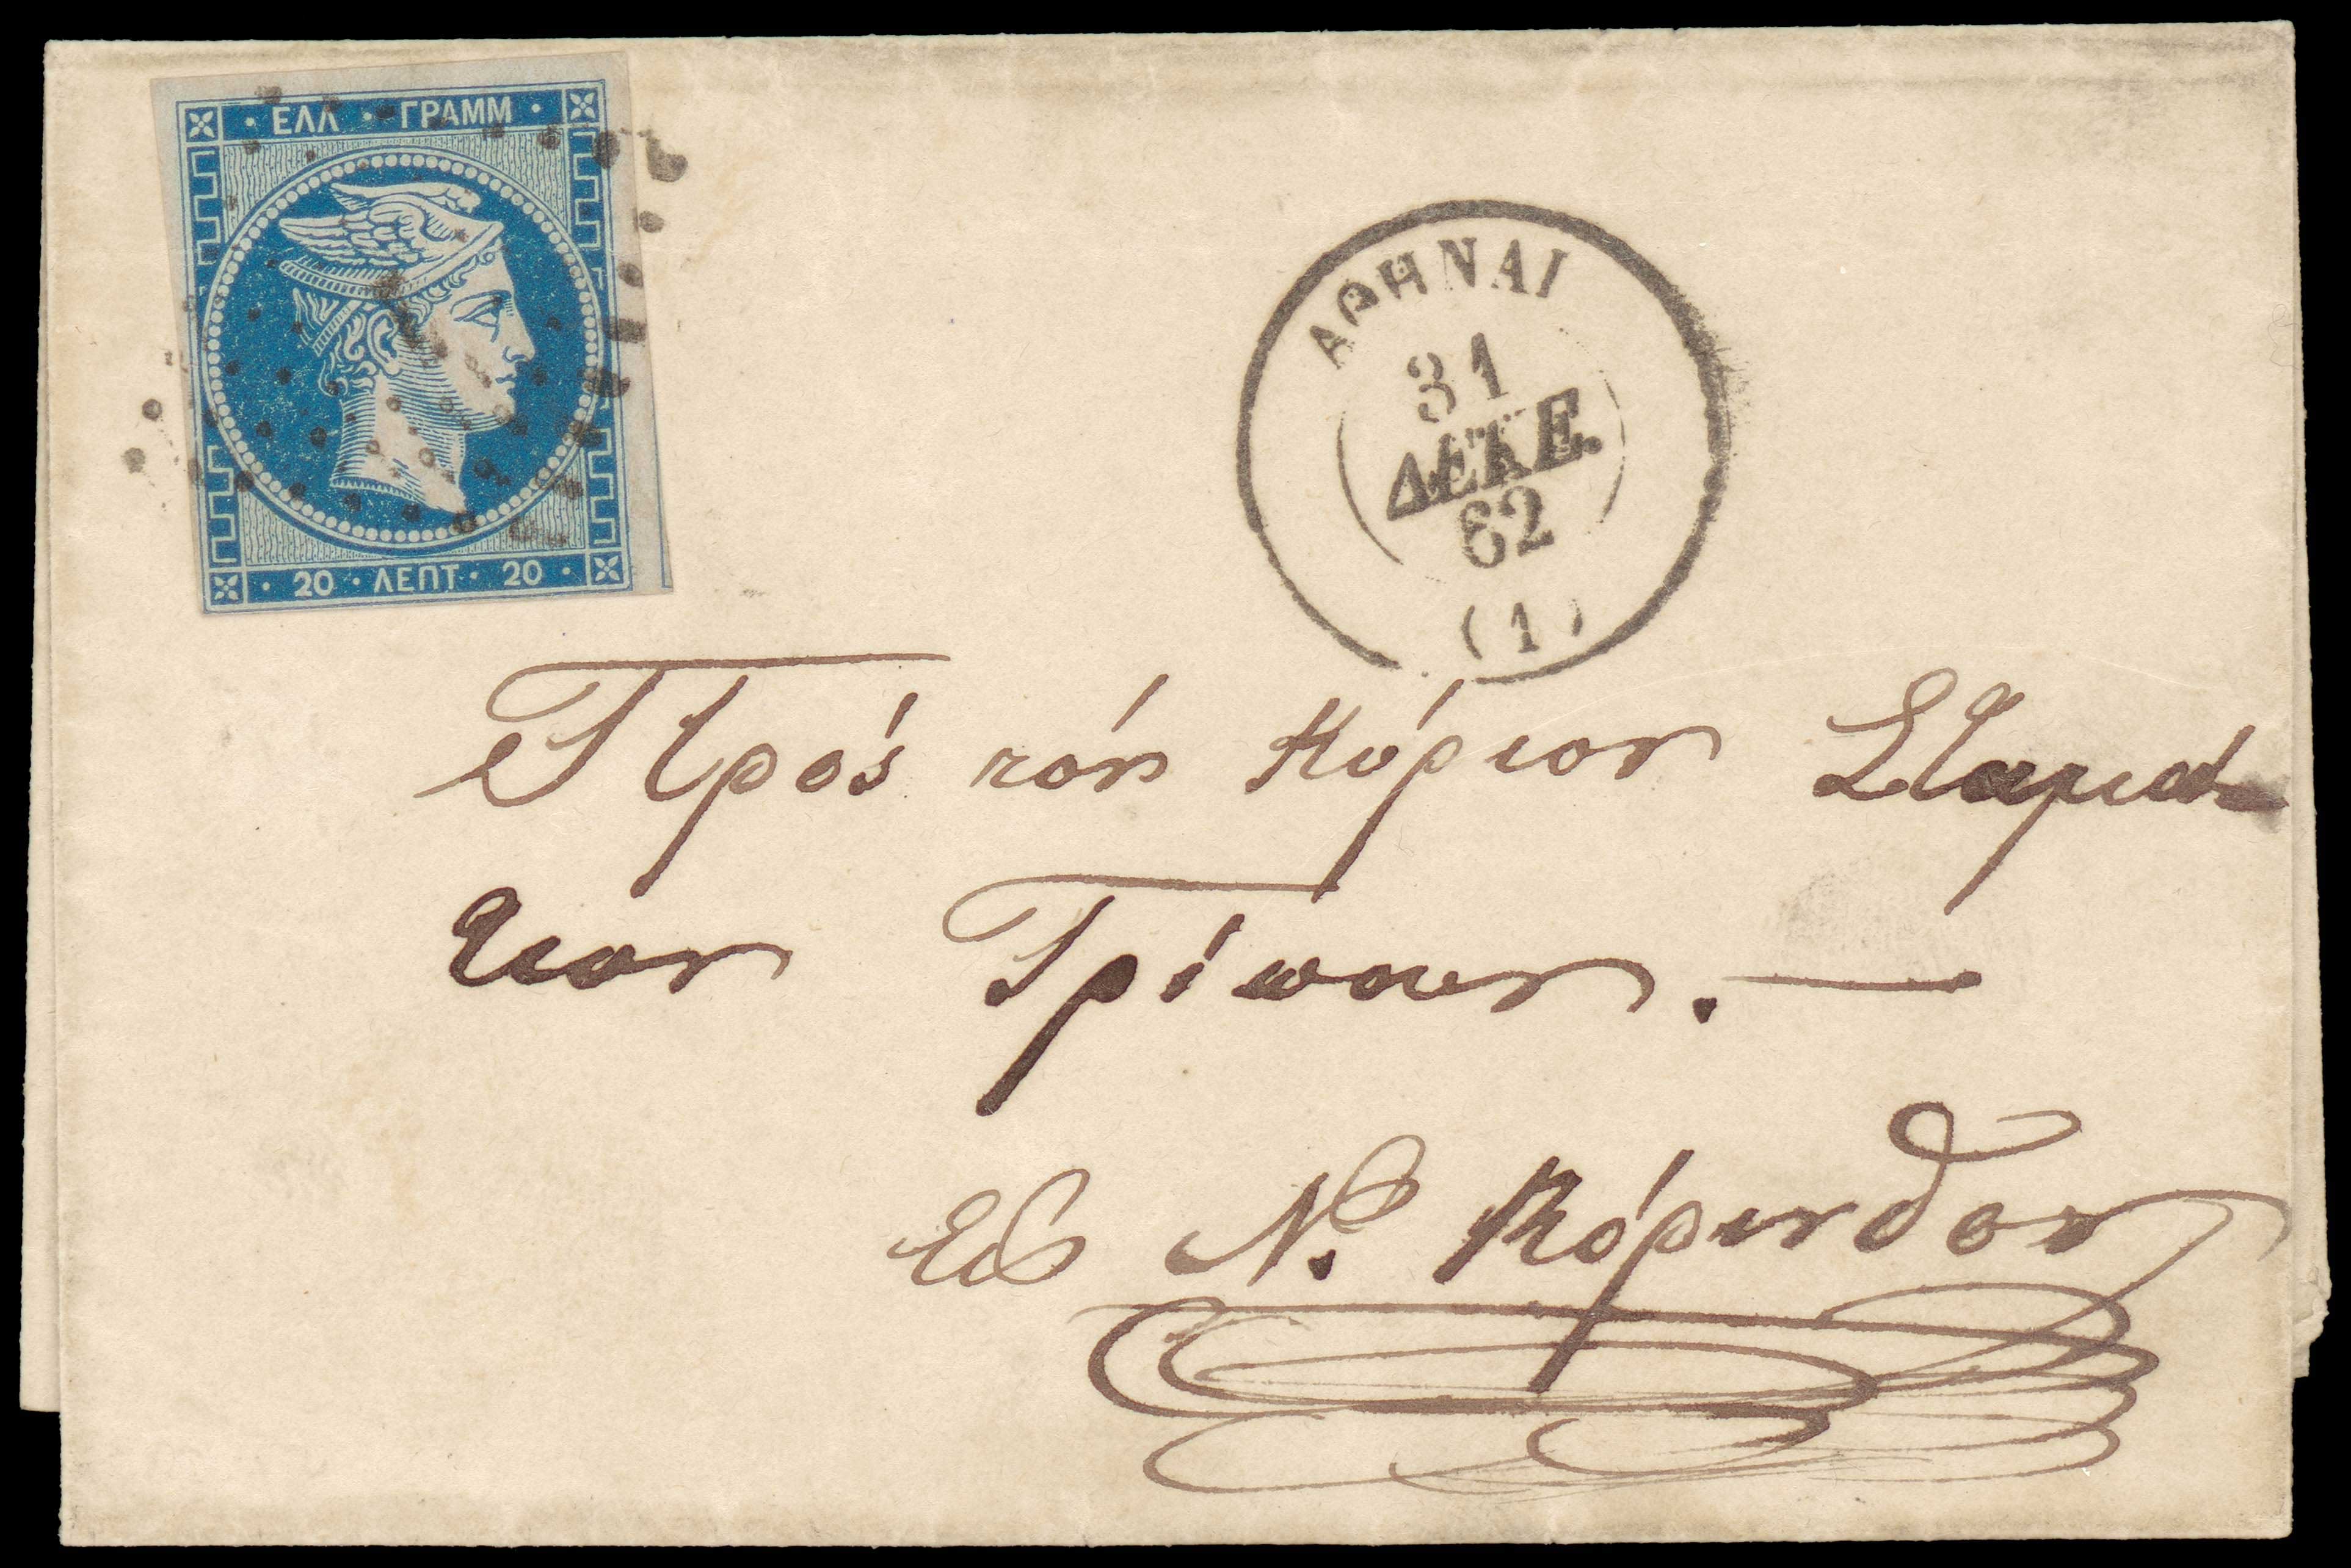 ΕΛΛ · ΓΡΑΜΜ ·
20 · ΛΕΠΤ · 20 ·
ΑΘΗΝΑΙ
31
ΔΕΚΕ.
62
(1)
Πρός τόν Κύριον Σταμά-
τιον Τρίπουν. —
Εις Ν. Κόρινθον